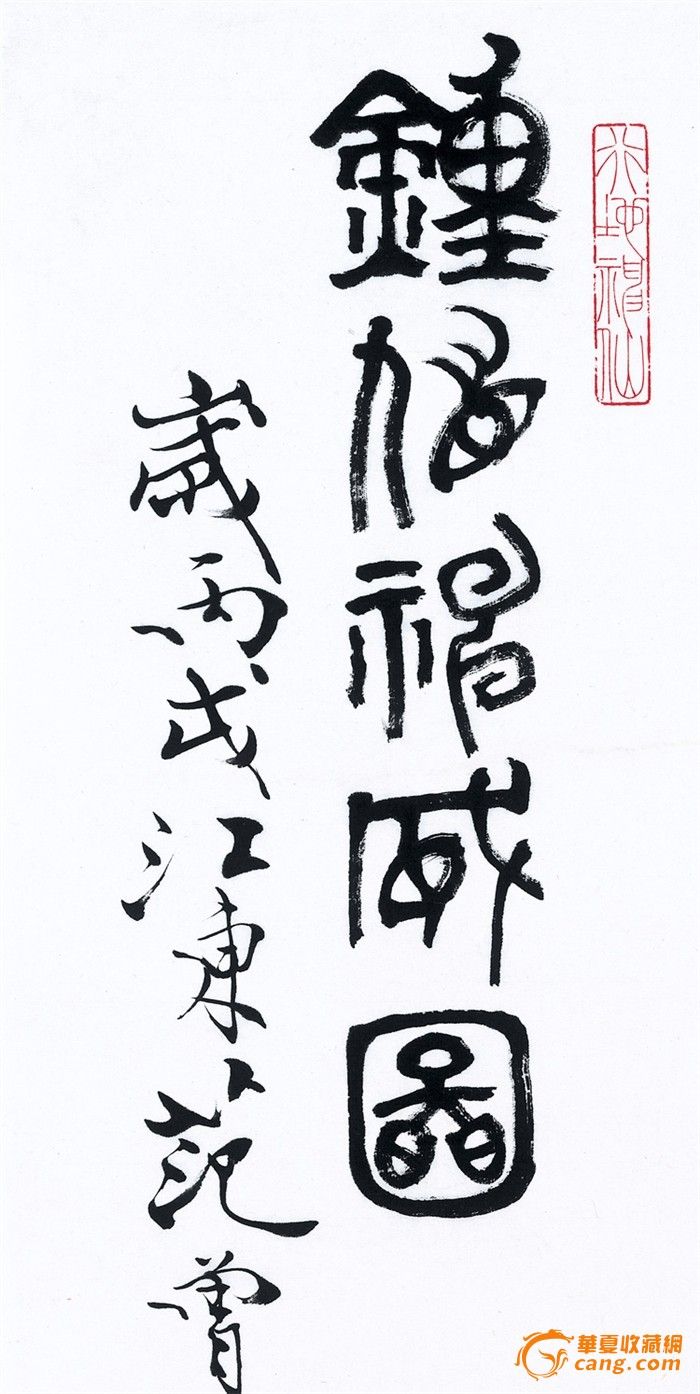 地神仙
鍾馗神威圖
歲丙戌江東范曾
華夏收藏網
cang.com